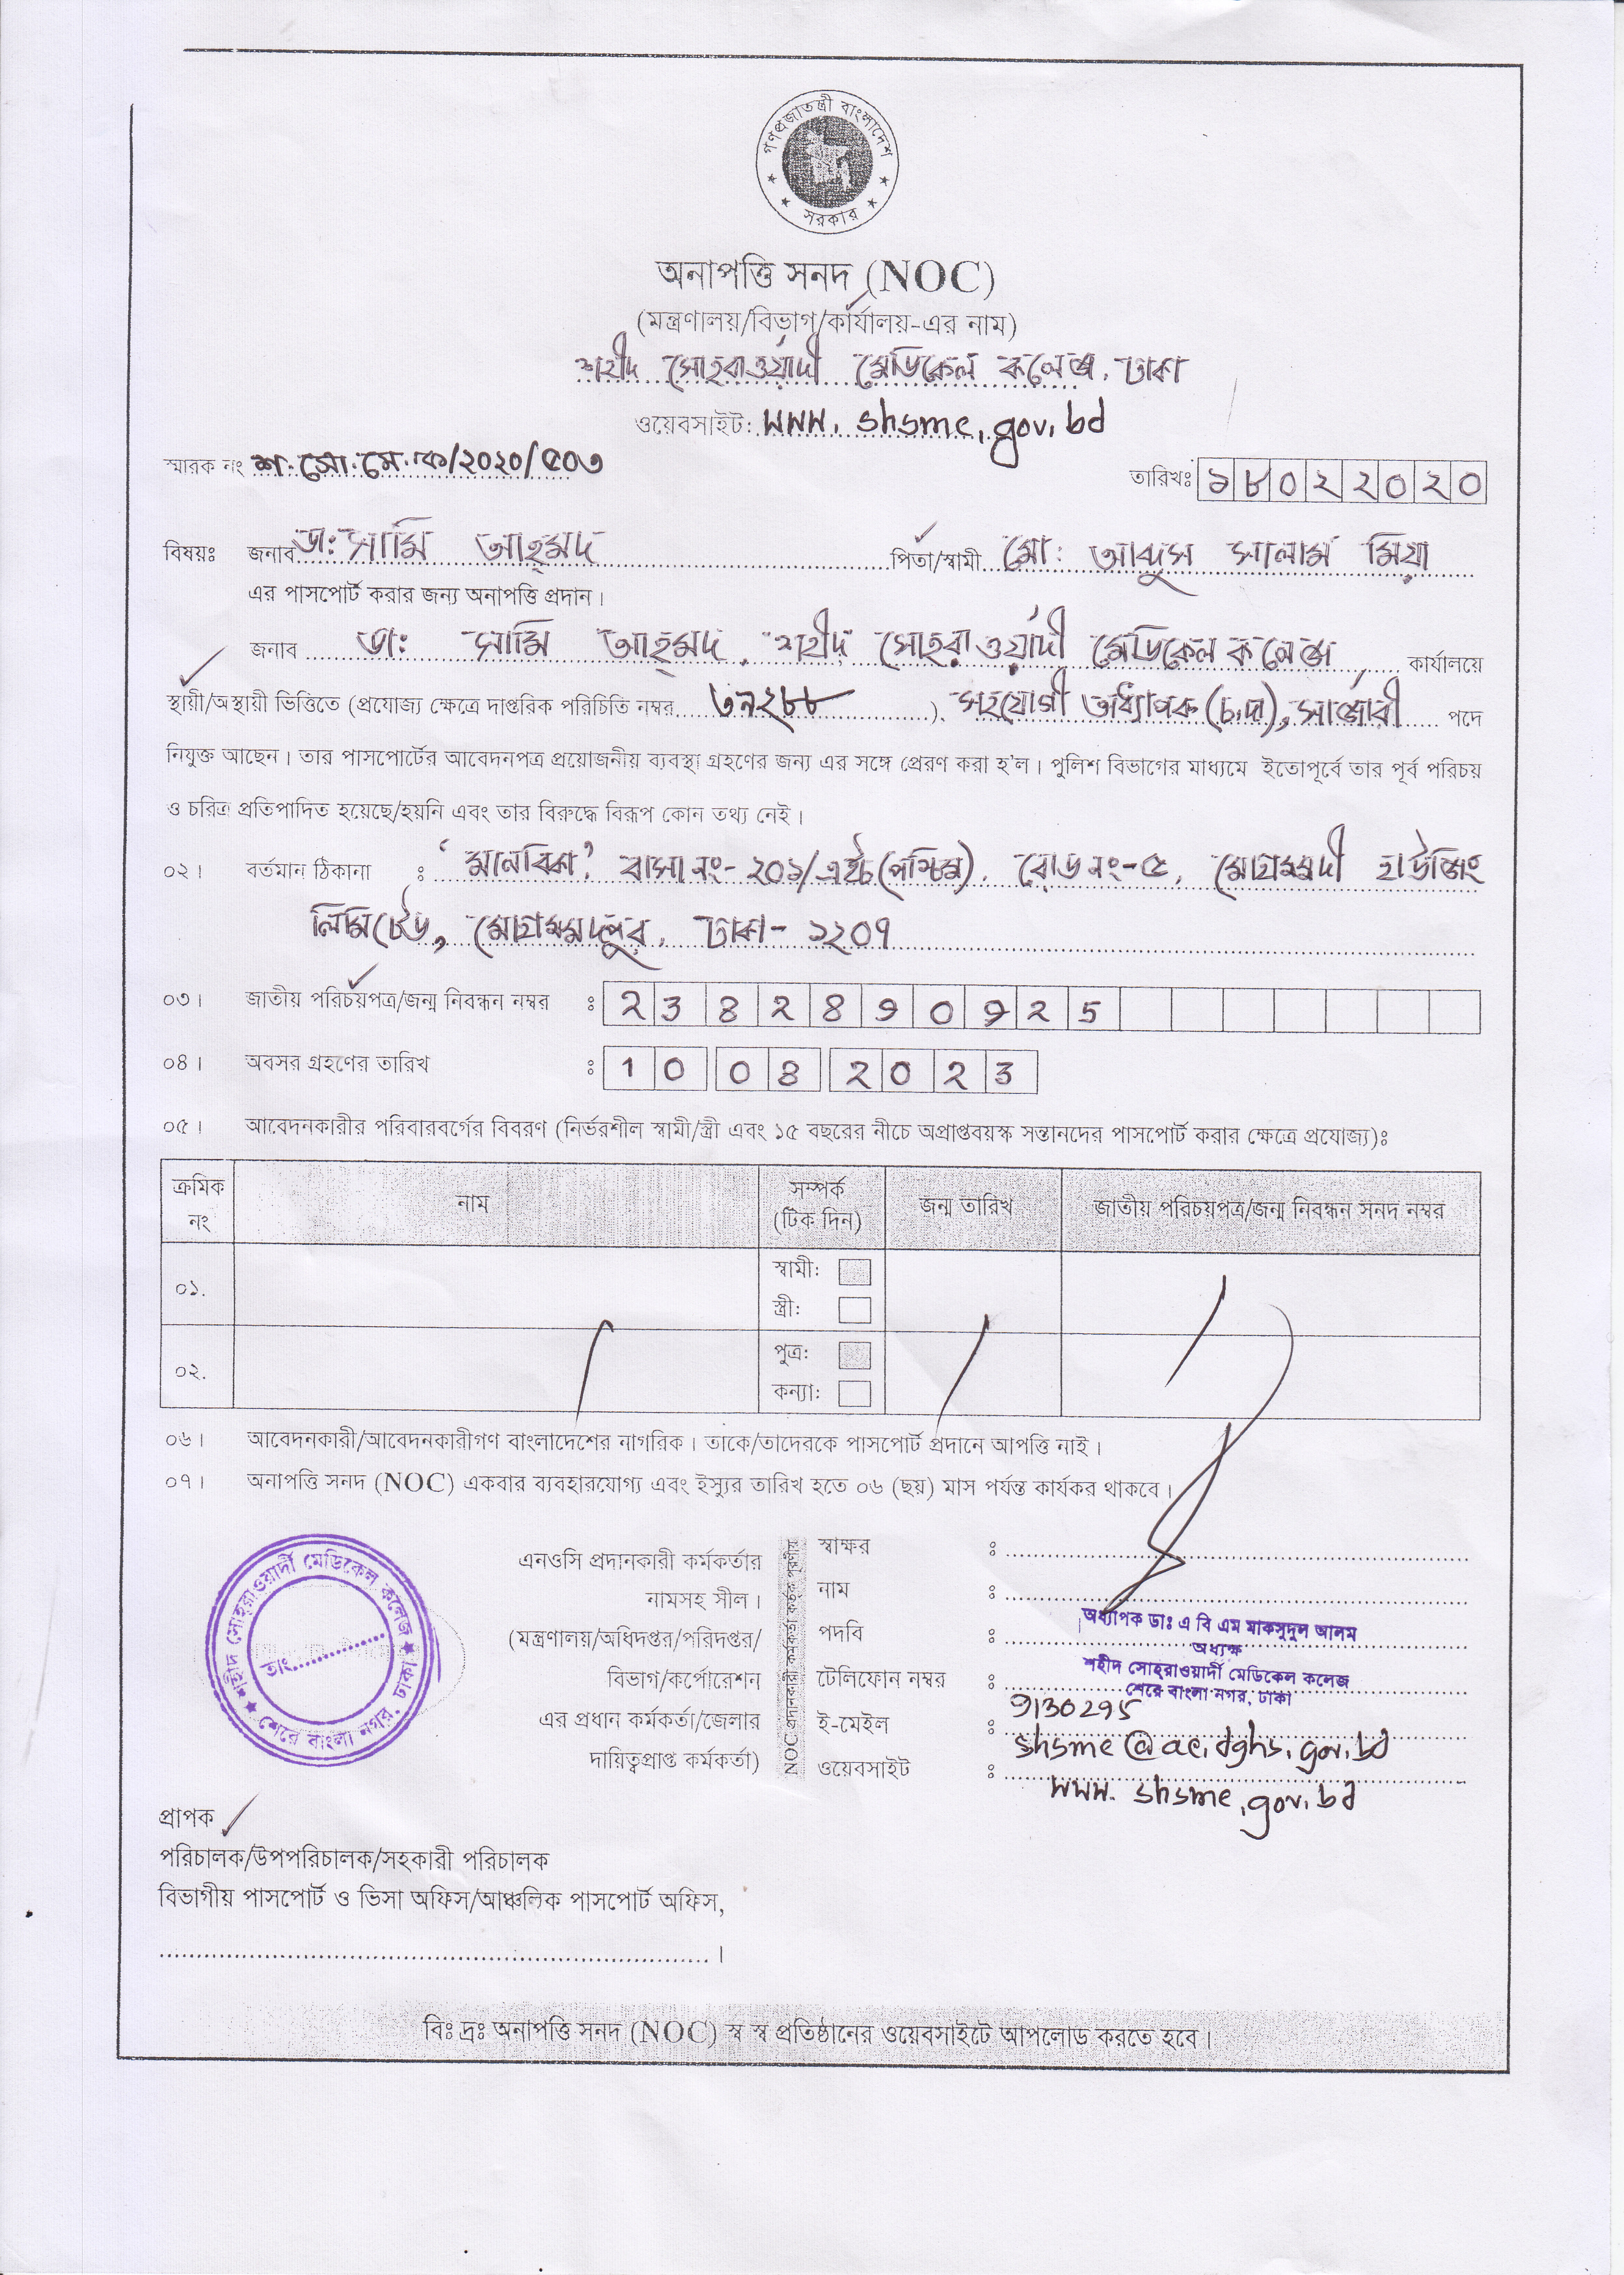 গণপ্রজাতন্ত্রী বাংলাদেশ
সরকার
অনাপত্তি সনদ (NOC)
(মন্ত্রণালয়/বিভাগ/কার্যালয়-এর নাম)
শহীদ সোহরাওয়ার্দী মেডিকেল কলেজ, ঢাকা
ওয়েবসাইট: www.shsmc.gov.bd
স্মারক নং শ.সো.মে.ক/২০২০/৫০৩
তারিখঃ ১৮০২২০২০
বিষয়ঃ জনাব ডা: সামি আহ্মদ পিতা/স্বামী মো: আব্দুস সালাম মিয়া
এর পাসপোর্ট করার জন্য অনাপত্তি প্রদান।
জনাব ডাঃ সামি আহ্মদ, শহীদ সোহরাওয়ার্দী মেডিকেল কলেজ কার্যালয়ে
স্থায়ী/অস্থায়ী ভিত্তিতে (প্রযোজ্য ক্ষেত্রে দাপ্তরিক পরিচিতি নম্বর ), সহযোগী অধ্যাপক (চ.দা), সার্জারী পদে
নিযুক্ত আছেন। তার পাসপোর্টের আবেদনপত্র প্রয়োজনীয় ব্যবস্থা গ্রহণের জন্য এর সঙ্গে প্রেরণ করা হ'ল। পুলিশ বিভাগের মাধ্যমে ইতোপূর্বে তার পূর্ব পরিচয়
ও চরিত্র প্রতিপাদিত হয়েছে/হয়নি এবং তার বিরুদ্ধে বিরূপ কোন তথ্য নেই।
০২। বর্তমান ঠিকানা : 'মানবিকা' বাসা নং- ২০১/এইচ (পশ্চিম), রোড নং-৫, মোহাম্মদী হাউজিং
লিমিটেড, মোহাম্মদপুর, ঢাকা- ১২০৭
০৩। জাতীয় পরিচয়পত্র/জন্ম নিবন্ধন নম্বর ঃ
০৪। অবসর গ্রহণের তারিখ ঃ
০৫। আবেদনকারীর পরিবারবর্গের বিবরণ (নির্ভরশীল স্বামী/স্ত্রী এবং ১৫ বছরের নীচে অপ্রাপ্তবয়স্ক সন্তানদের পাসপোর্ট করার ক্ষেত্রে প্রযোজ্য)ঃ
ক্রমিক নং নাম সম্পর্ক (টিক দিন) জন্ম তারিখ জাতীয় পরিচয়পত্র/জন্ম নিবন্ধন সনদ নম্বর
০১. স্বামী:
স্ত্রী:
০২. পুত্র:
কন্যা:
০৬। আবেদনকারী/আবেদনকারীগণ বাংলাদেশের নাগরিক। তাকে/তাদেরকে পাসপোর্ট প্রদানে আপত্তি নাই।
০৭। অনাপত্তি সনদ (NOC) একবার ব্যবহারযোগ্য এবং ইস্যুর তারিখ হতে ০৬ (ছয়) মাস পর্যন্ত কার্যকর থাকবে।
শহীদ সোহরাওয়ার্দী মেডিকেল কলেজ
তাং
শেরে বাংলা নগর, ঢাকা
এনওসি প্রদানকারী কর্মকর্তার
নামসহ সীল।
(মন্ত্রণালয়/অধিদপ্তর/পরিদপ্তর/
বিভাগ/কর্পোরেশন
এর প্রধান কর্মকর্তা/জেলার
দায়িত্বপ্রাপ্ত কর্মকর্তা)
NOC প্রদানকারী কর্মকর্তা কর্তৃক পূরণীয়
স্বাক্ষর ঃ
নাম ঃ
পদবি ঃ
টেলিফোন নম্বর ঃ
ই-মেইল ঃ
ওয়েবসাইট ঃ
অধ্যাপক ডাঃ এ বি এম মাকসুদুল আলম
অধ্যক্ষ
শহীদ সোহরাওয়ার্দী মেডিকেল কলেজ
শেরে বাংলা নগর, ঢাকা
9130295
shsmc@ac.dghs.gov.bd
www.shsmc.gov.bd
প্রাপক
পরিচালক/উপপরিচালক/সহকারী পরিচালক
বিভাগীয় পাসপোর্ট ও ভিসা অফিস/আঞ্চলিক পাসপোর্ট অফিস,
বিঃ দ্রঃ অনাপত্তি সনদ (NOC) স্ব স্ব প্রতিষ্ঠানের ওয়েবসাইটে আপলোড করতে হবে।